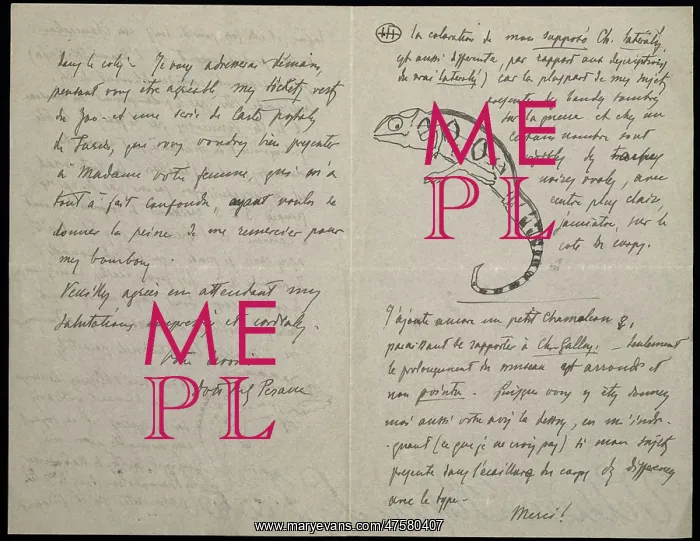 dans le colis. Je vous adresserai demain,
pensant vous être agréable
du Zoo et une série de Cartes postales
de Tunis, que vous voudrez bien présenter
à Madame votre femme, qui m'a
tout à fait confondu, ayant voulu se
donner la peine de me remercier pour
mes bonbons.
Veuillez agréer en attendant mes
salutations empressées et cordiales.
Votre
Doct
La coloration de mon supposé Ch. lateralis,
est aussi différente, par rapport aux descriptions
du vrai lateralis) car la plupart de mes sujets
présente des bandes sombres
sur la queue et chez un
certain nombre sont
des taches
noires ovales, avec
centre plus clair,
sur le
côté du corps.
J'ajoute encore un petit Chamaeleon ♀,
paraissant se rapporter à Ch. Gallus. – Seulement
le prolongement du museau est arrondi et
non pointu. Puisque vous y êtes donnez
moi aussi votre avis là dessus, en m'indi-
-quant (ce que je ne crois pas) si mon sujet
présente dans l'écaillure du corps des différences
avec le type.
Merci!
ME
PL
ME
PL
www.maryevans.com/47580407